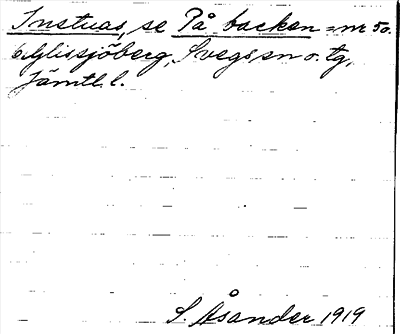 Instuas, se På backen = nr 50.
b. Glissjöberg, Svegs sn o. tg,
Jämtl. l.
S. Åsander 1919